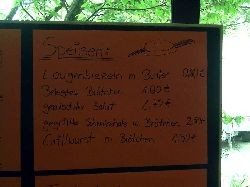 Speisen:
Laugenbrezeln m. Butter
Belegtes Brötchen
gemischter Salat
gegrillte Schweinehals m. Brötchen 2,50€
Grillwurst m. Brötchen 2,50€